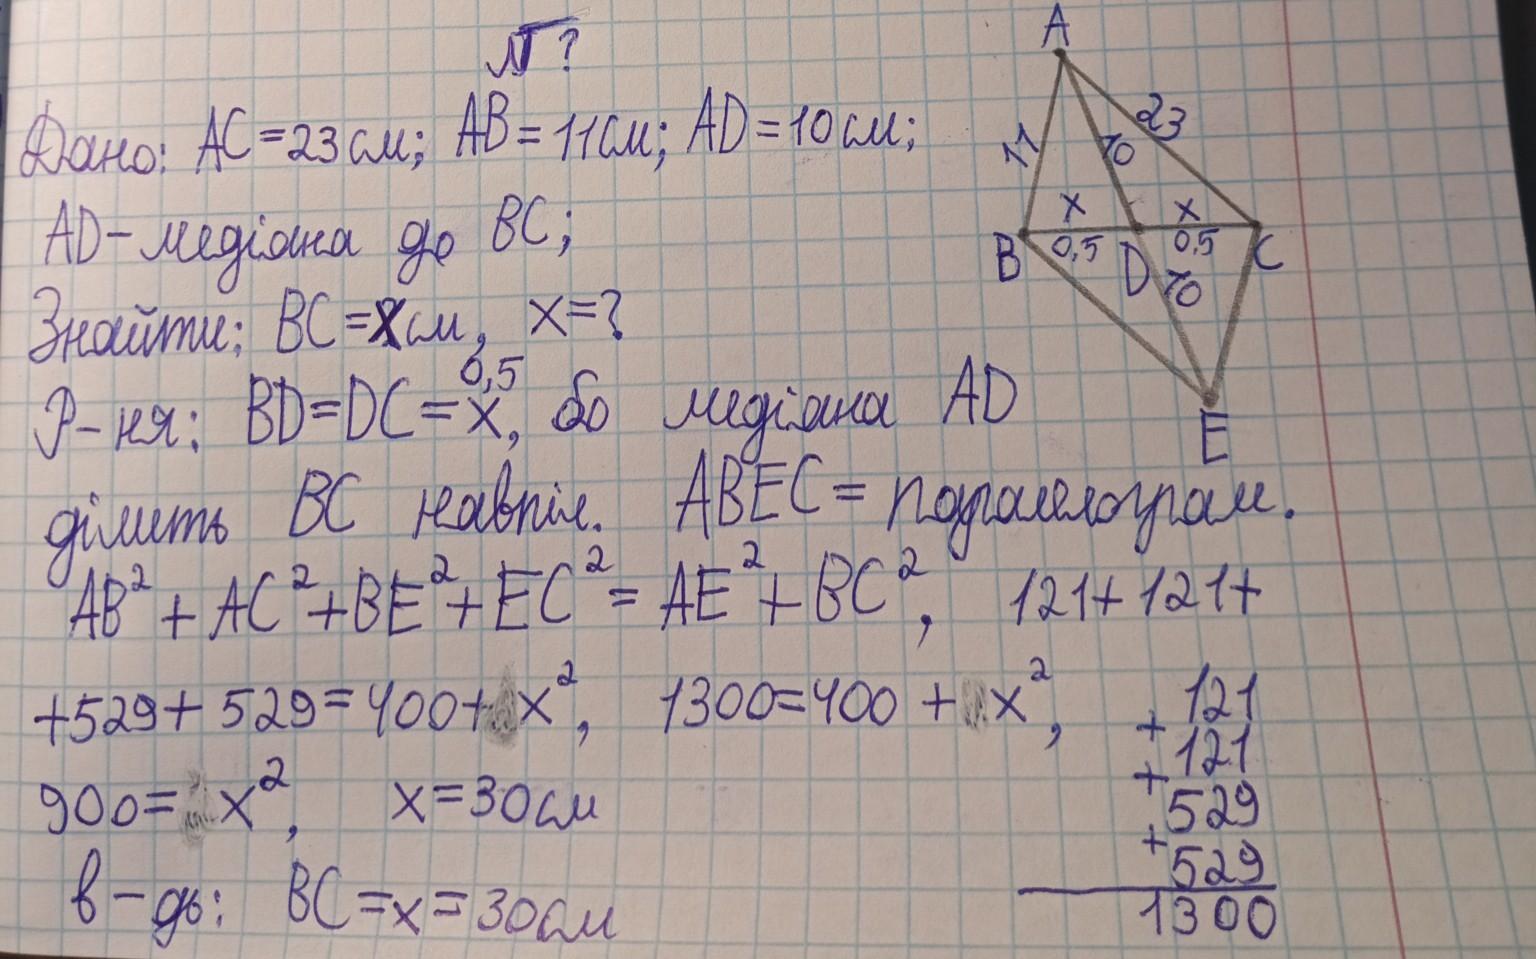 № ?
Дано: AC=23см; AB=11см; AD=10см;
AD-медіана до BC;
Знайти: BC=xсм, x=?
Р-ня: BD=DC=0,5x, бо медіана AD
ділить BC навпіл. ABEC= паралелограм.
AB²+AC²+BE²+EC²=AE²+BC², 121+121+
+529+529=400+x², 1300=400+x²,
900=x², x=30см
в-дь: BC=x=30см
A
11
10
23
x
x
B
0,5
D
0,5
C
10
E
121
+
121
+
529
+
529
1300